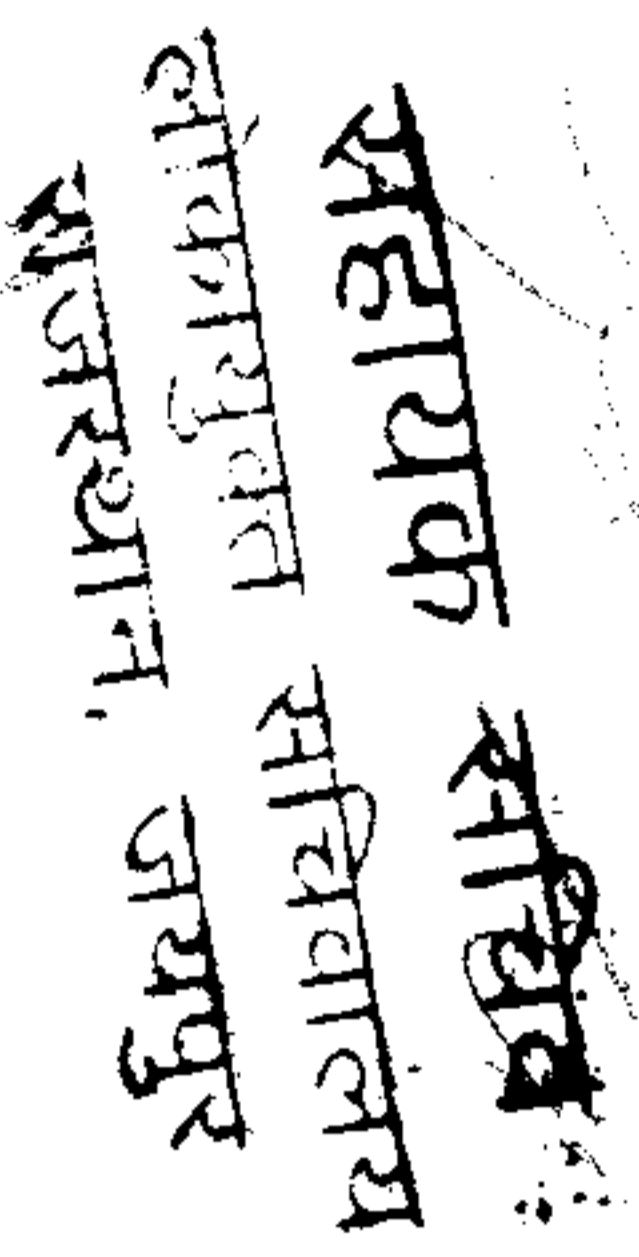 सहायक सचिव
लोकायुक्त सचिवालय
राजस्थान, जयपुर